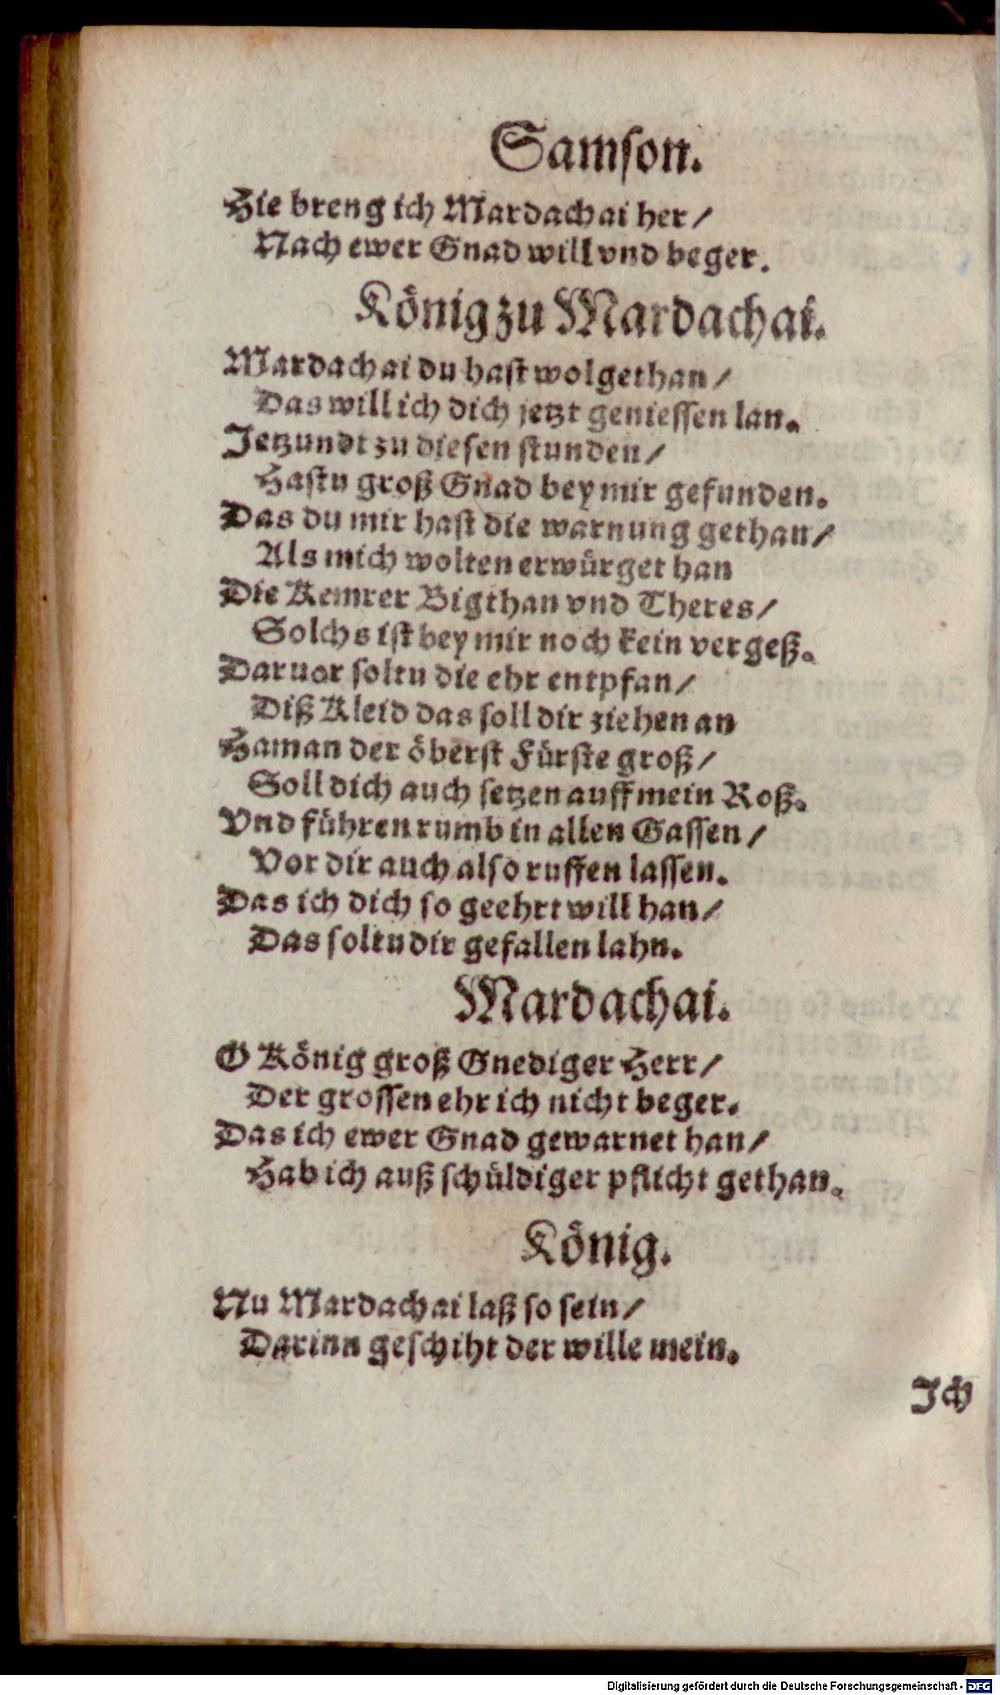 Samson.
Hie breng ich Mardachai her/
Nach ewer Gnad will vnd beger.
König zu Mardachai.
Mardachai du hast wolgethan/
Das will ich dich jetzt geniessen lan.
Jetzundt zu diesen stunden/
Hastu groß Gnad bey mir gefunden.
Das du mir hast die warnung gethan/
Als mich wolten erwürget han
Die Kemrer Bigthan vnd Theres/
Solchs ist bey mir noch kein vergeß.
Daruor soltu die ehr entpfan/
Diß Kleid das soll dir ziehen an
Haman der öberst Fürste groß/
Soll dich auch setzen auff mein Roß.
Vnd führen rumb in allen Gassen/
Vor dir auch also ruffen lassen.
Das ich dich so geehrt will han/
Das soltu dir gefallen lahn.
Mardachai.
O König groß Gnediger Herr/
Der grossen ehr ich nicht beger.
Das ich ewer Gnad gewarnet han/
Hab ich auß schüldiger pflicht gethan.
König.
Nu Mardachai laß so sein/
Darinn geschiht der wille mein.
Ich
Digitalisierung gefördert durch die Deutsche Forschungsgemeinschaft - DFG